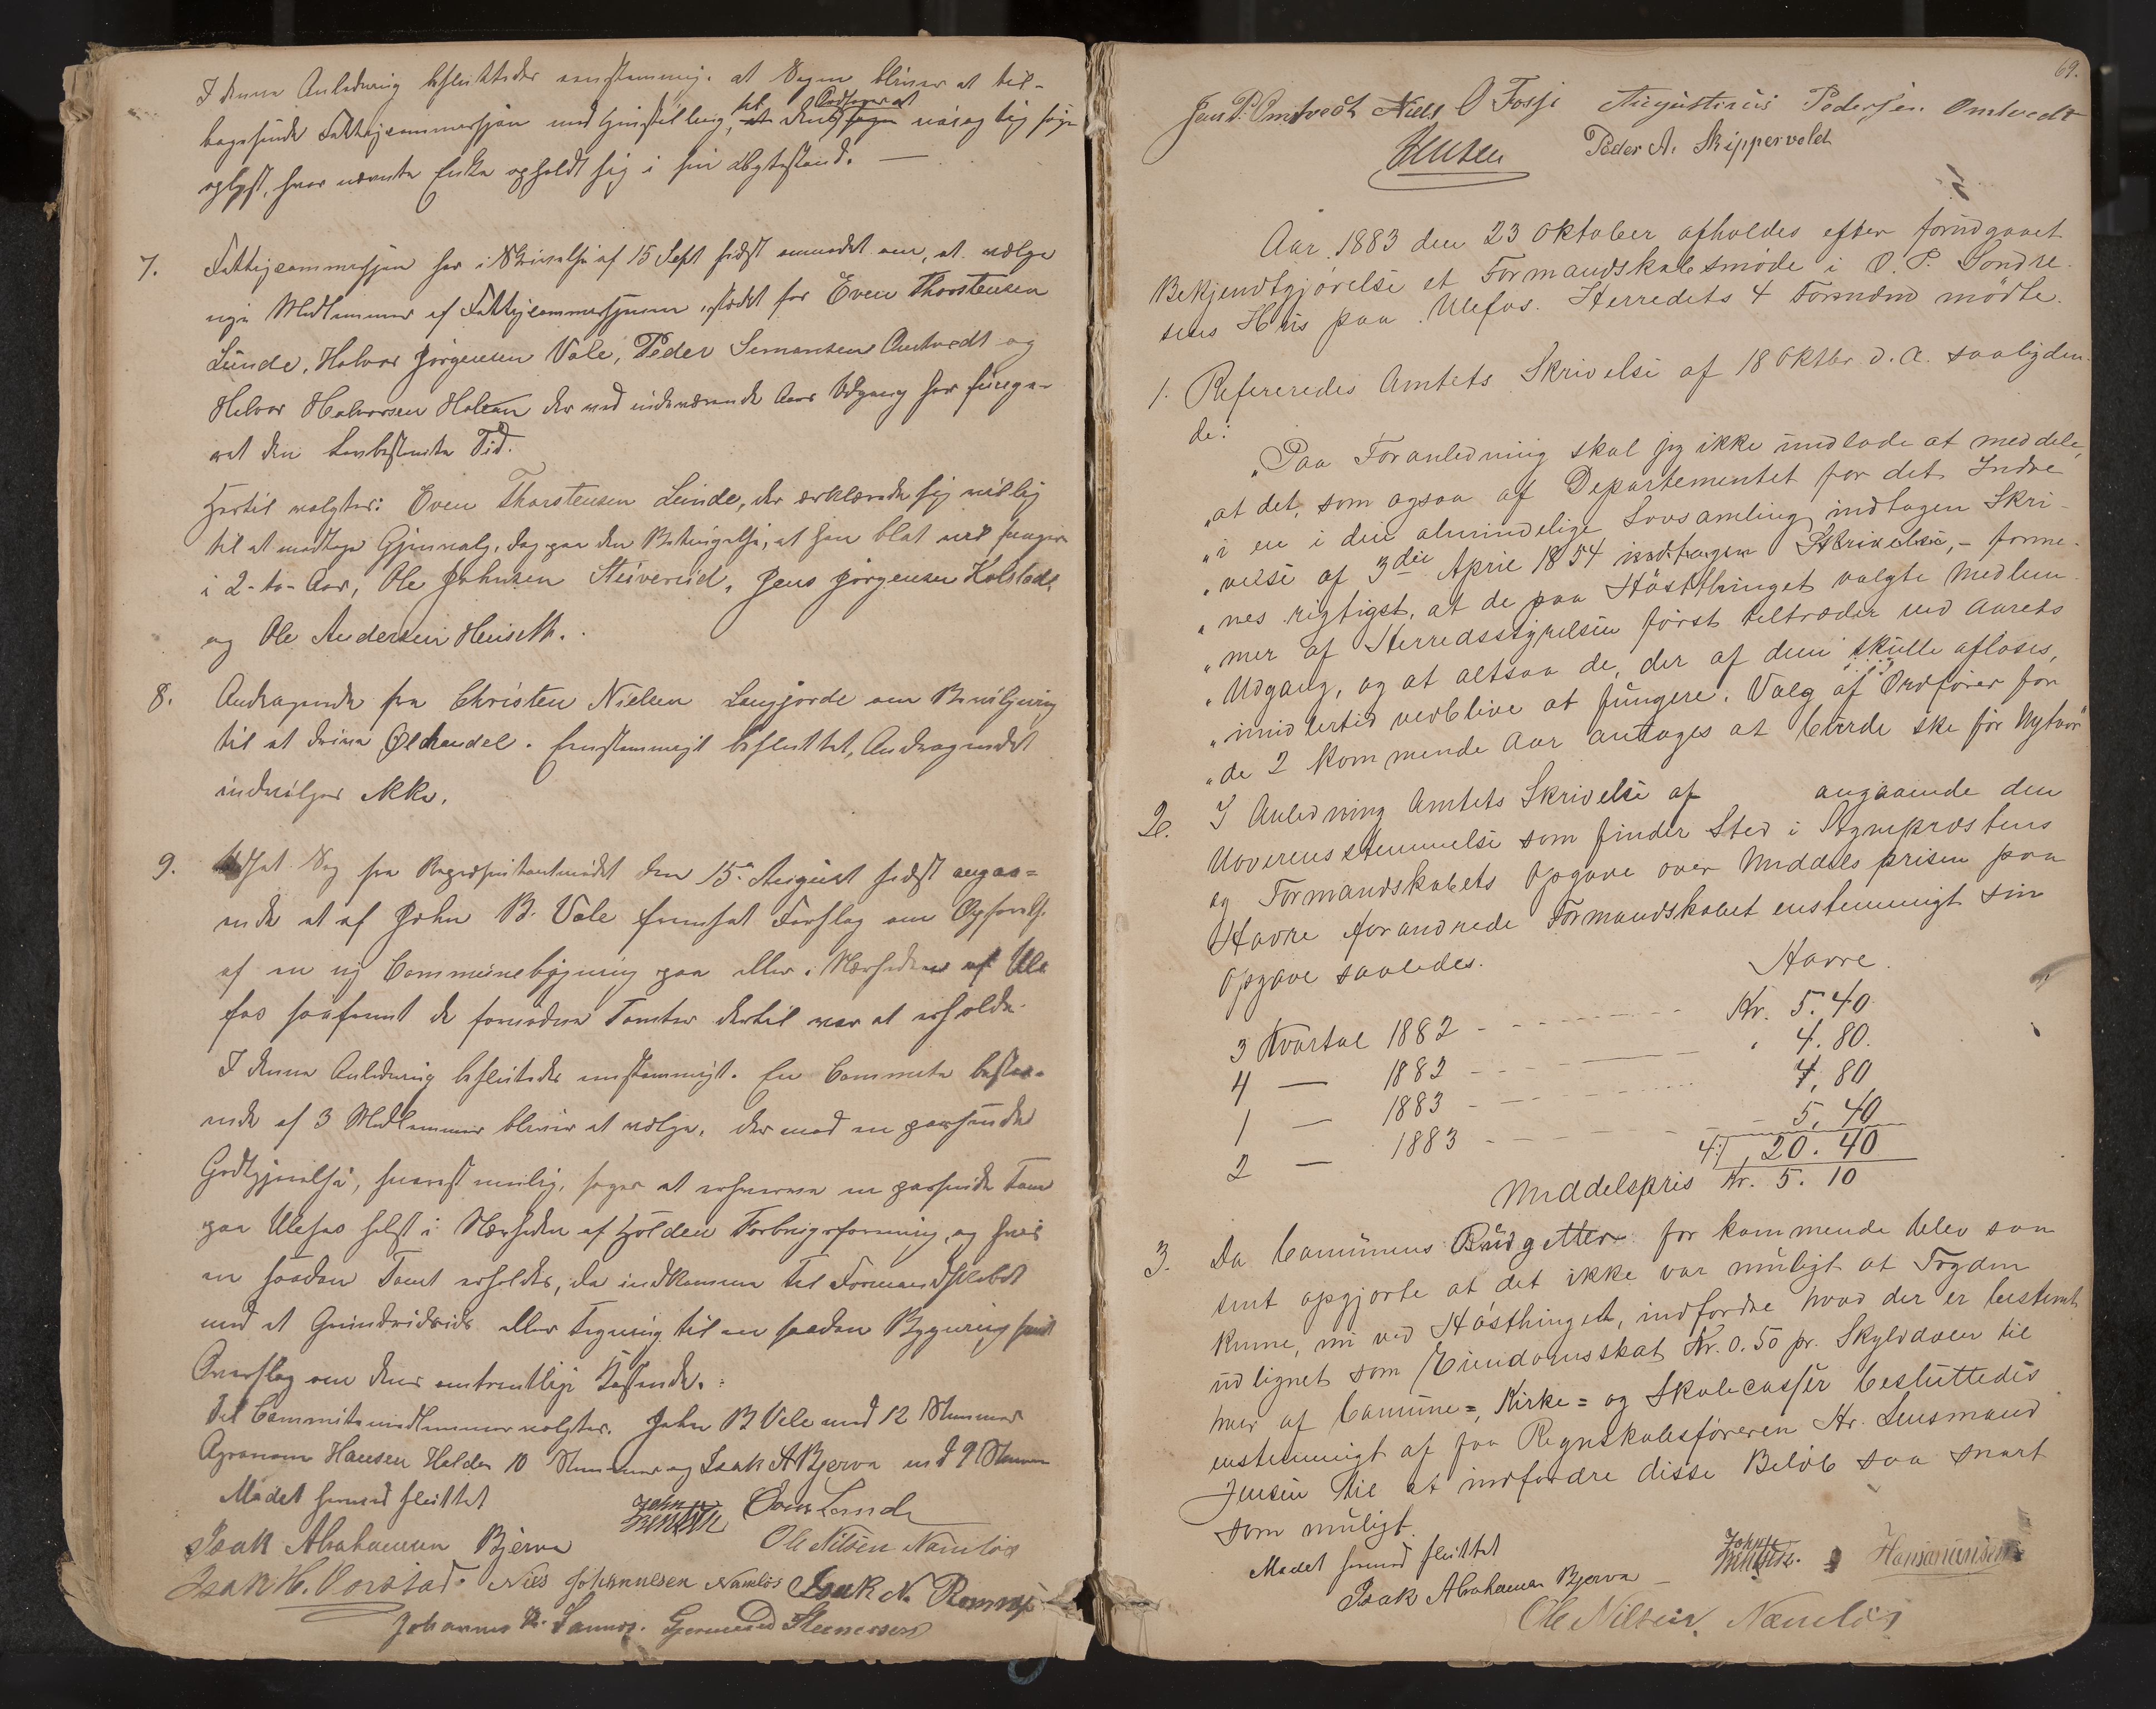 I denne Anledning besluttedes enstemmig: at Sagen bliver at til-
bagesende Fattigcommissjon med Henstilling, til dens Ordfører at søge
oplyst, hvor nævnte Enke opholdt sig i sin
7. Fattigcommissjon har i Skrivelse af 15 Sept sidst anmodet om, at vælge
nye Medlemmer af Fattigcommissjonen istedet for Even Thorstensen
Lunde, Halvor Jørgensen Vale, Peder Simonsen Omtvedt og
Halvor Halvorsen Holtan der ved indeværende Aars Udgang har funge-
ret den lovbestemte Tid.
Hertil valgtes: Even Thorstensen Lunde, der erklærede sig villig
til at modtage Gjenvalg, dog paa den Betingelse, at han blot vil fungere
i 2 - to - Aar, Ole Johnsen Stuverud, Jens Jørgensen Kolstad,
og Ole Andersen Heiseth.
8. Andragende fra Christen Nielsen Langjorde om Bevilgning
til at drive Ølhandel. Enstemmigt besluttet, Andragendet
indvilges ikke.
9. Udsat Sag fra Repræsentantmødet den 15de August sidst angaa-
ende et af John B. Vale fremsat Forslag om Opførelse
af en ny Communebygning paa eller i Nærheden af Ule
fos saafremt de fornødne Tomter dertil var at erholde.
I denne Anledning besluttedes enstemmigt. En Commite bestaa-
ende af 3 Medlemmer bliver at vælge, der mod en passende
Godtgjørelse, snarest mulig, søger at erhverve en passende Tomt
paa Ulefos helst i Nærheden af Holden Forbrugsforening, og hvis
en saadan Tomt erholdes, da indkomme til Formandskabet
med et Grundrids eller Tegning til en saadan Bygning samt
Overslag om dens omtrentlige Kostende.
Til Commitemedlemmer valgtes. John B Vale med 12 Stemmer
Agronom Hansen Holden 10 Stemmer og Isak A Bjerva med 9 Stemmer
Mødet hermed sluttet
John Bentsen Even Lunde
Isak Abrahamsen Bjerva Ole Nilsen Namløs
Isak H. Vorstad. Nils Johannesen Namløs Isak N. Romnes
Johannes Gjermund Steenersen
69.
Jens P. Omtvedt Niels O Fosse Augustinus Pedersen Omtvedt
Jensen Peder A. Skippervold
Aar 1883 den 23 Oktober afholdes efter forudgaaet
Bekjendtgjørelse et Formandskabsmøde i O. P. Søndre-
sens Hus paa Ulefos. Herredets 4 Formænd mødte.
1. Refereredes Amtets Skrivelse af 18 Oktbr d. A. saalyden-
de:
„Paa Foranledning skal jeg ikke undlade at meddele,
„at det, som ogsaa af Departementet for det Indre
„i en i den almindelige Lovsamling indtagen Skri-
„velse af 3die April 1854 indtagen Skrivelse, - forme-
„nes rigtigst, at de paa Høstthinget valgte Medlem-
„mer af Herredsstyrelsen først tiltræder ved Aarets
„Udgang, og at altsaa de, der af dem skulle afløses,
„imidlertid vedblive at fungere. Valg af Ordfører for
„de 2 kommende Aar antages at burde ske før Nytaar"
2. I Anledning Amtets Skrivelse af angaaende den
Uoverensstemmelse som finder Sted i Sogneprestens
og Formandskabets Opgave over Middelsprisen paa
Havre forandrede Formandskabet enstemmigt sin
Opgave saaledes.
Havre.
3 Kvartal 1882 - - - - - - - Kr. 5.40
4 — 1882 - - - - - - - " 4.80.
1 — 1883 - - - - - - - 4,80
2 — 1883 - - - - - - - 5,40
4:| 20.40
Middelspris Kr. 5.10
3. Da Comunens Budgetter for kommende blev saa
sent opgjorte at det ikke var muligt at Fogden
kunne, nu ved Høstthinget, indfordre hvad der er bestemt
udlignet som Eiendomsskat Kr. 0.50 pr. Skylddaler til
hver af Comune=, Kirke= og Skolecasser besluttedes
enstemmigt at faa Regnskabsføreren Hr. Lensmand
Jensen til at indfordre disse Beløb saa snart
som muligt.
Mødet hermed sluttet
Isak Abrahamsen Bjerva John Bentsen. Hansen
Ole Nilsen Namløs